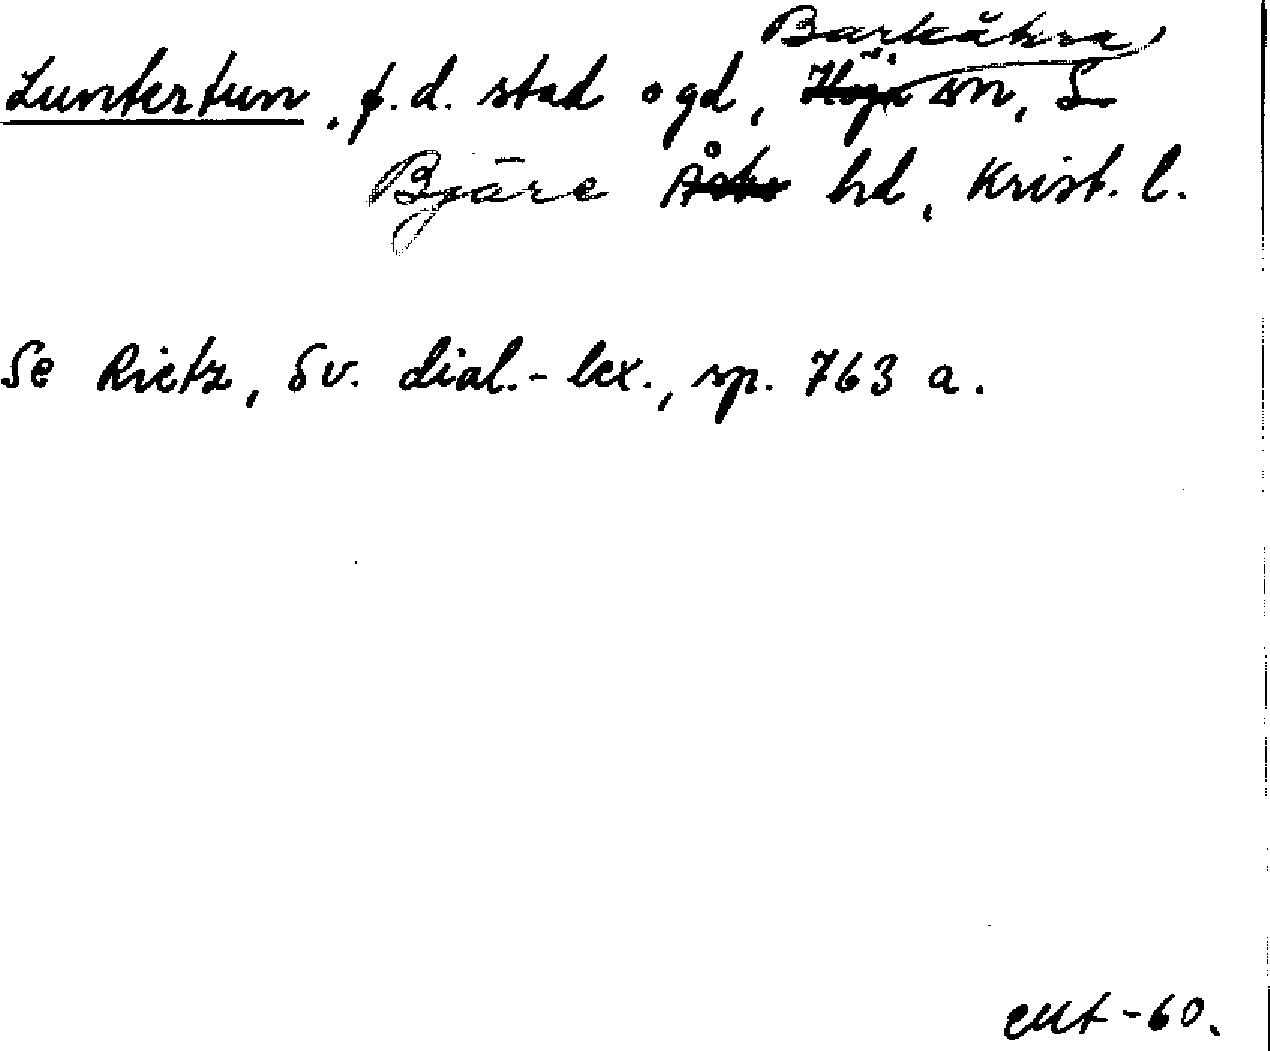 Barkåkra
Luntertun, f.d. stad o gd, Höja sn, S
Bjäre Åsbo hd, Krist. l.
Se Rietz, Sv. dial.-lex., sp. 763 a.
-60.